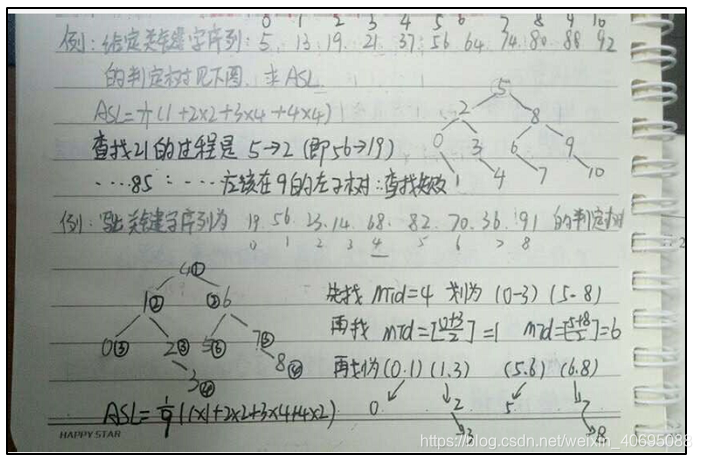 0 1 2 3 4 5 6 7 8 9 10
例:给定关键字序列:5. 13. 19. 21. 37. 56. 64. 74. 80. 88. 92
的判定树见下图,求ASL
ASL=1/11(1+2×2+3×4+4×4)
查找21的过程是 5→2 (即56→19)
……85:……应该在9的左子树∴查找失败
5
2 8
0 3 6 9
1 4 7 10
例: 关键字序列为 19. 56. 23. 14. 68. 82. 70. 36. 91 的判定树
0 1 2 3 4 5 6 7 8
4①
1② ②6
0③ 2③ 5③ 7③
3④ 8④
先找 mid=4 划为 (0-3) (5-8)
再找 mid=[0+3/2]=1 mid=[5+8/2]=6
再划为(0.1) (1.3) (5.6) (6.8)
0 2 5 7
3 8
ASL=1/9(1×1+2×2+3×4+4×2)
HAPPY STAR
https://blog.csdn.net/weixin_40695088